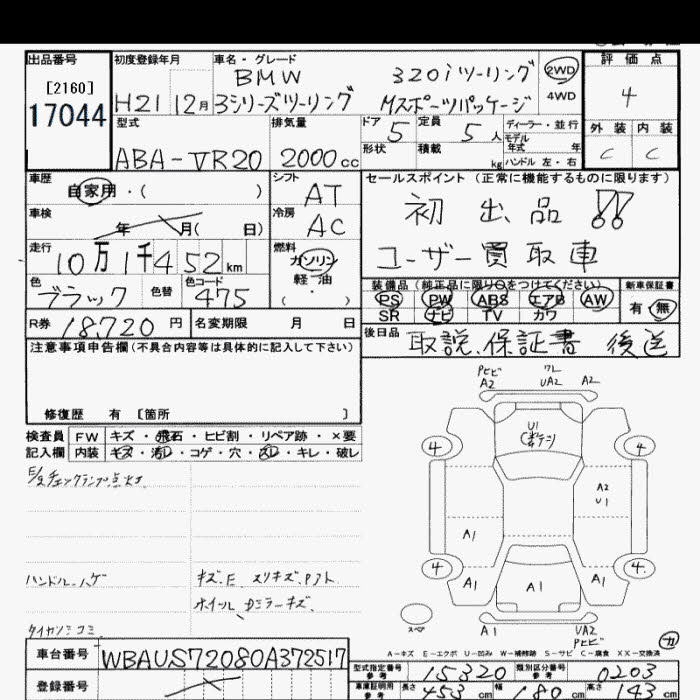 出品番号 初度登録年月 車名・グレード 評価点
[2160] BMW 320iツーリング 2WD
17044 H21 12月 3シリーズツーリング Mスポーツパッケージ 4WD 4
型式 排気量 ドア 5 定員 5人 ディーラー・並行 外装 内装
モデル年式 年
ABA-VR20 2000cc 形状 積載 kg ハンドル 左・右 C C
車歴 シフト セールスポイント(正常に機能するものに限ります)
自家用・( ) AT 初出品!!
車検 冷房
年 月( 日) AC ユーザー買取車
走行 燃料
10万1千452km ガソリン
軽油
( ・ )
装備品(純正品に限り○をつけてください) 新車保証書
色 ブラック 色替 色コード 475 PS PW ABS エアB AW 有・無
SR ナビ TV カワ
R券 18,720円 名変期限 月 日 後日品 取説、保証書 後送
注意事項申告欄(不具合内容等は具体的に記入して下さい)
修復歴 有 [箇所 ]
検査員 FW キズ・飛石・ヒビ割・リペア跡・×要
記入欄 内装 キズ・汚れ・コゲ・穴・スレ・キレ・破レ
チェックランプ点灯
ハンドルハゲ
ホイル、
車台番号 WBAUS72080A372517
登録番号
A2 UA2 A2
U1
4 4
A2
U1
A1
4 4
A1 A1 A1
スペア A1 UA2
カ
A-キズ E-エクボ U-凹み W-補修跡 S-サビ C-腐食 XX-交換済
型式指定番号 参考 15320 類別区分番号 参考 0203
車庫証明用 参考 長さ 453cm 幅 180cm 高さ 143cm